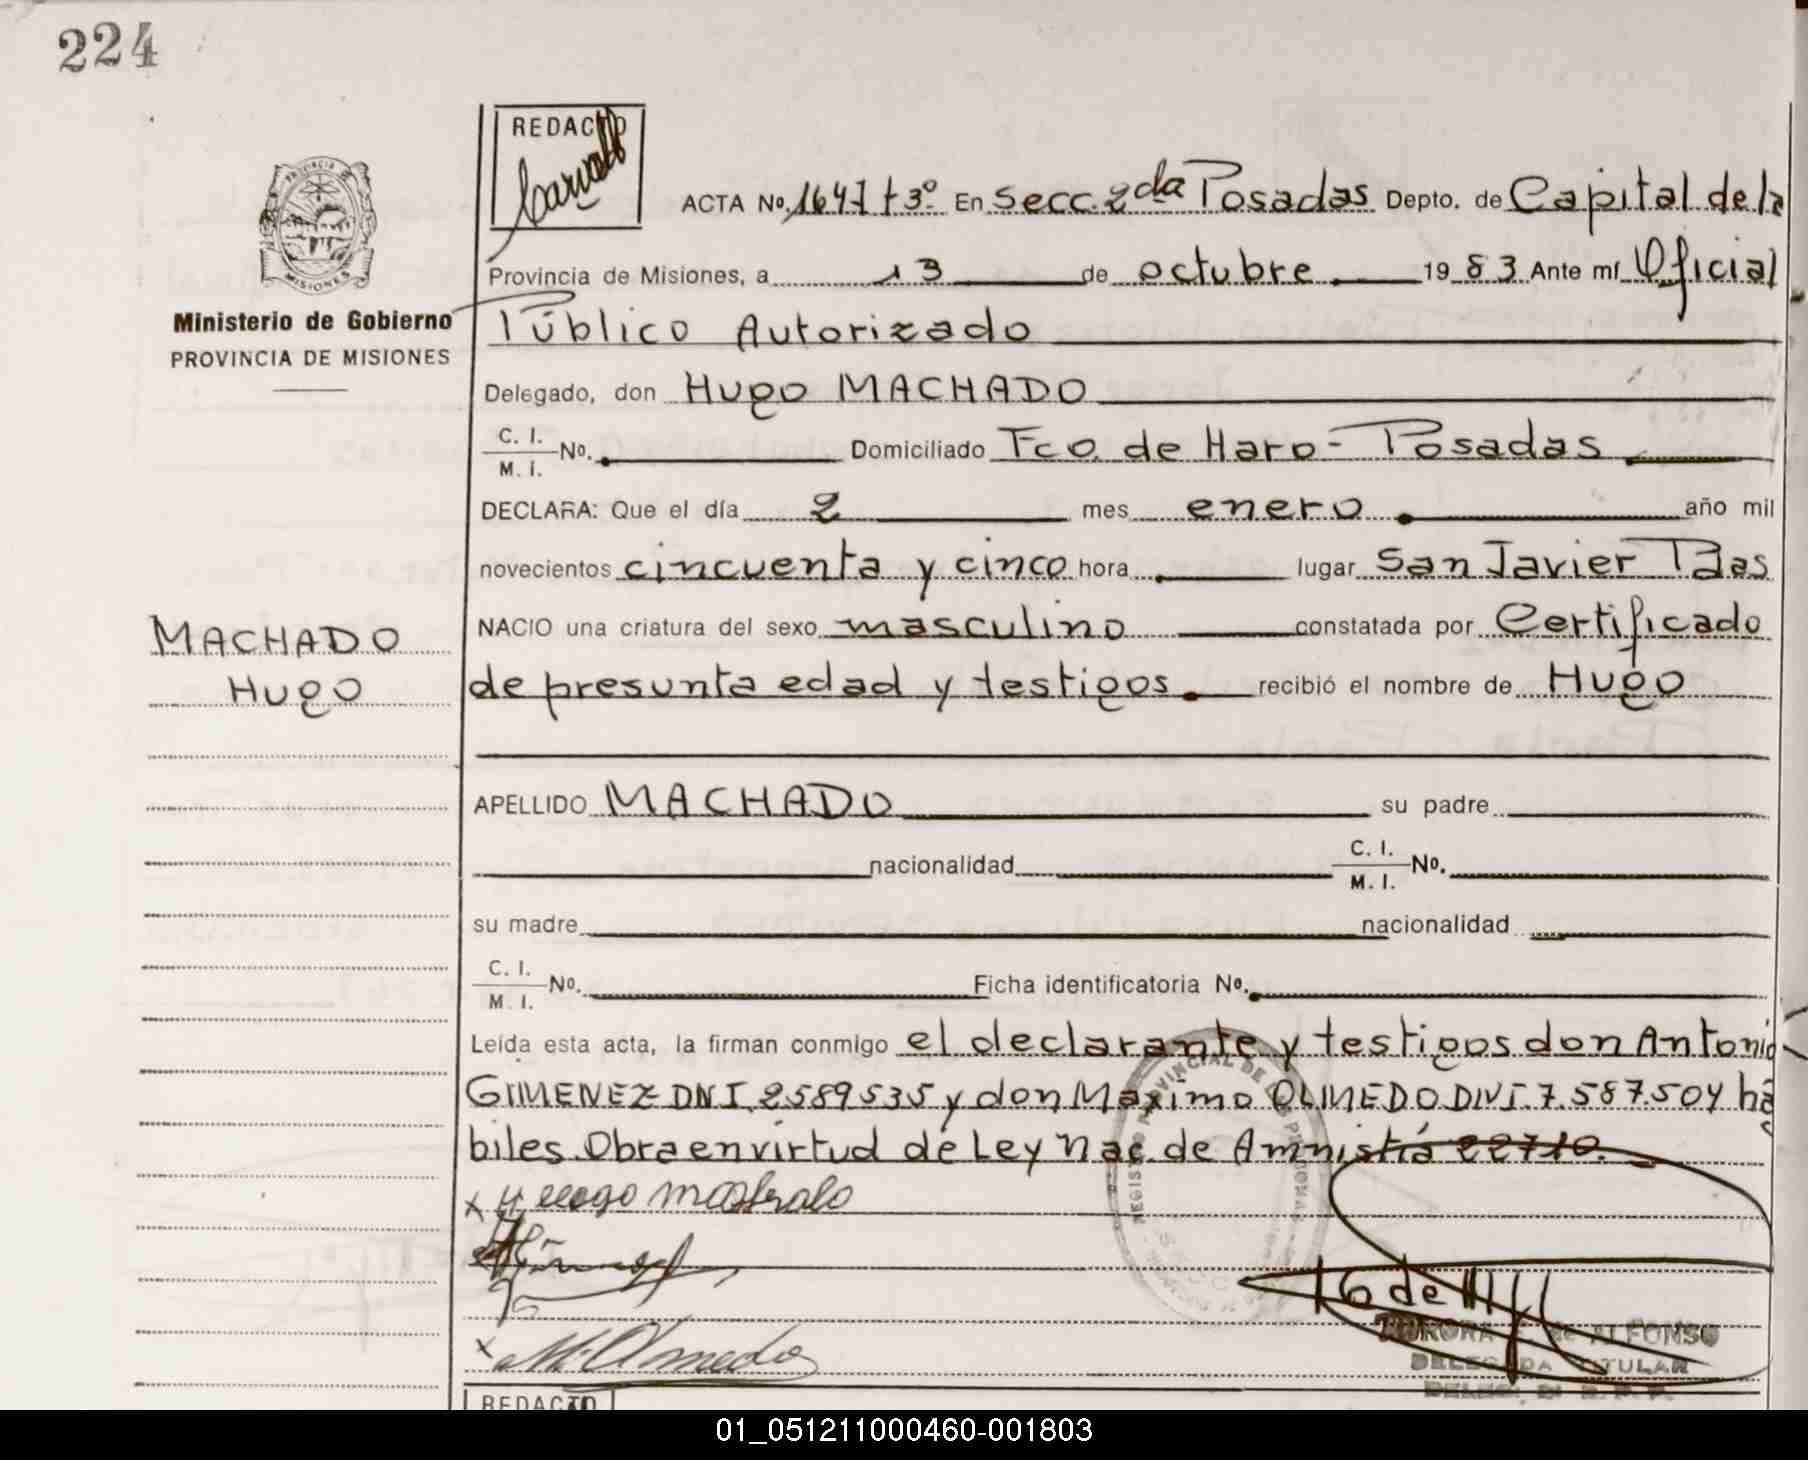 224
REDACTO
ACTA No. 1647 t 3º En Secc. 2da Posadas Depto. de Capital de la
Provincia de Misiones, a 13 de octubre 1983 Ante mí Oficial
Ministerio de Gobierno
PROVINCIA DE MISIONES
Público Autorizado
Delegado, don Hugo MACHADO
C. I.
M. I. No. Domiciliado Fco. de Haro - Posadas
DECLARA: Que el día 2 mes enero año mil
novecientos cincuenta y cinco hora lugar San Javier Pdas
NACIO una criatura del sexo masculino constatada por Certificado
MACHADO
Hugo
de presunta edad y testigos. recibió el nombre de Hugo
APELLIDO MACHADO su padre
nacionalidad C. I.
M. I. No.
su madre nacionalidad
C. I.
M. I. No. Ficha identificatoria No.
Leída esta acta, la firman conmigo el declarante y testigos don Antonio
GIMENEZ DNI. 2589535 y don Máximo OLMEDO DNI. 7.587.504 há
biles. Obra en virtud de Ley Nac. de Amnistía 22710.
x Hugo
x M. Olmedo
de ALFONSO
DELEGADA TITULAR
REDACTO
01_051211000460-001803